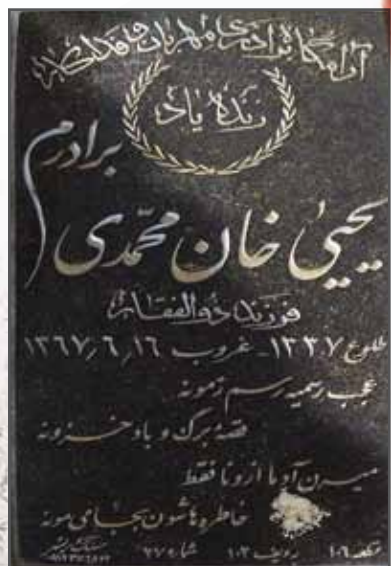 آرامگاه برادری مهربان و فداکار
زنده یاد
برادرم
یحیی خان محمدی
فرزند ذوالفقار
طلوع ۱۳۳۷ - غروب ۱۶٫۶٫۱۳۶۷
عجب رسمیه رسم زمونه
قصه برگ و باد خزونه
میرن آدما از ونا فقط
خاطره هاشون بجا می مونه
قطعه ۱۰۶ ردیف ۱۰۳ شماره ۲۷